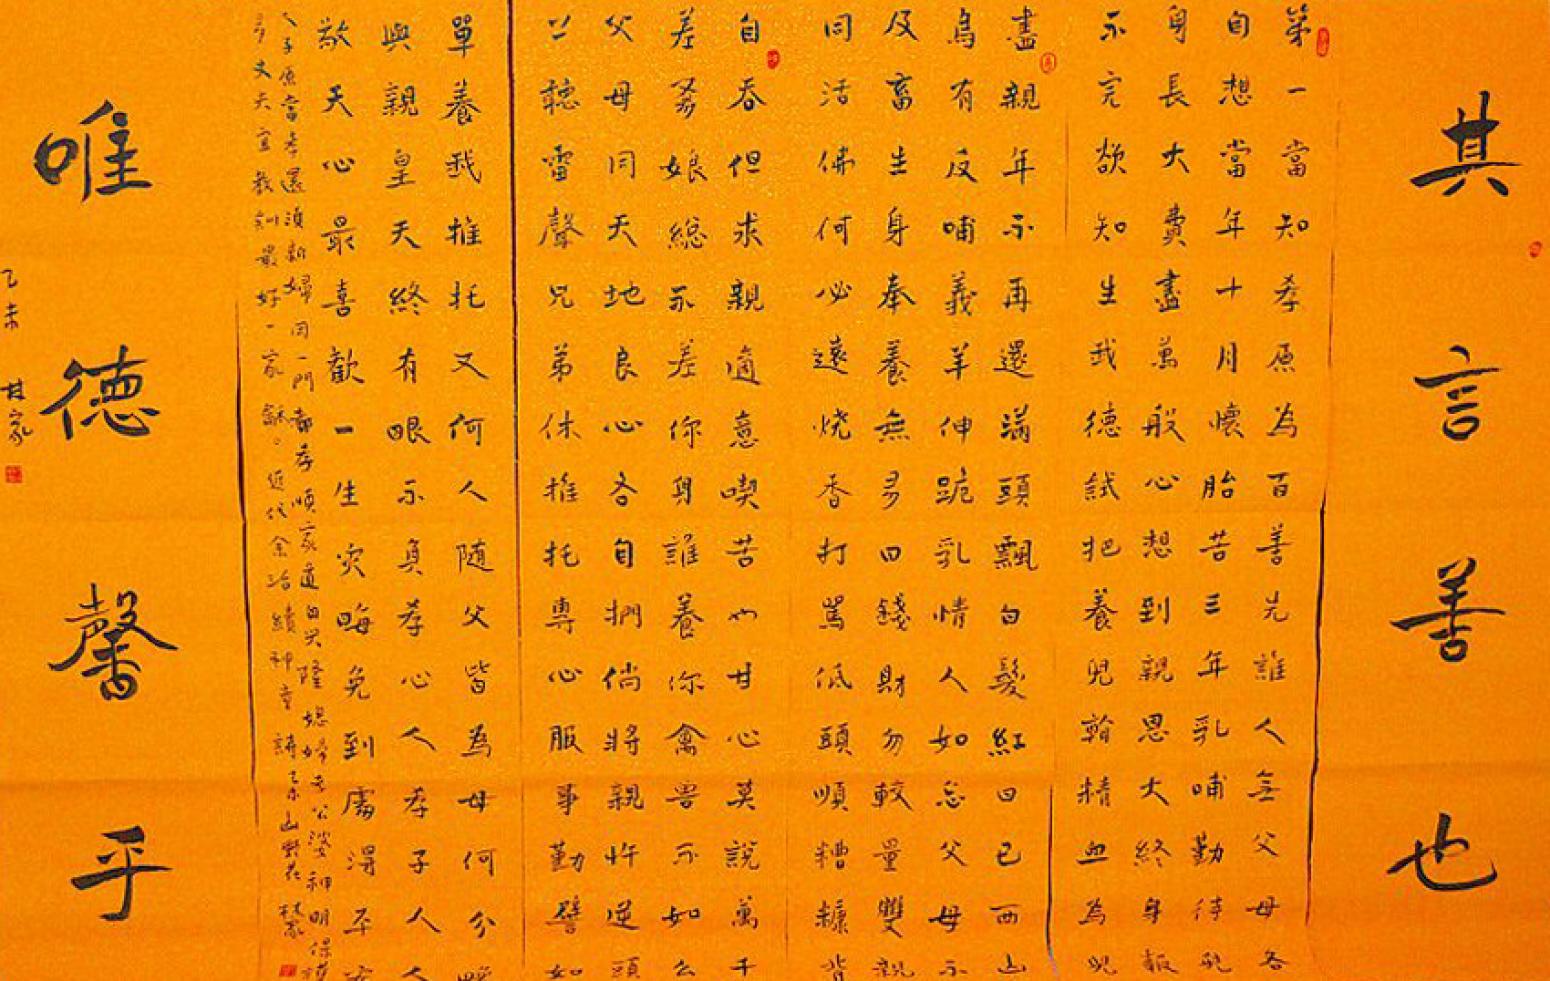 其言善也
第一當知孝原為百善先誰人無父母各
自想當年十月懷胎苦三年乳哺勤待兒
身長大費盡萬般心想到親恩大終身報
不完欲知生我德試把養兒幹精血為兒
盡親年不再還滿頭飄白髮紅日已西山
烏有反哺義羊伸跪乳情人如忘父母不
及畜生身奉養無多日錢財勿較量雙親
同活佛何必遠燒香打罵低頭順糟糠背
自吞但求親適意喫苦也甘心莫說萬千
差爹娘總不差你身誰養你禽獸不如么
父母同天地良心各自捫倘將親忤逆頭
上聽雷聲兄弟休推托專心服事勤譬如
單養我推托又何人隨父皆為母何分
與親皇天終有眼不負孝心人孝子人人
敬天心最喜歡一生災晦免到處得平
人子原當孝還須新婦同一門都孝順家道自興隆媳婦孝公婆神明保
多丈夫宜教訓最好一家和近代余治續神童詩乙未山野花
唯德馨乎
乙未
甘家